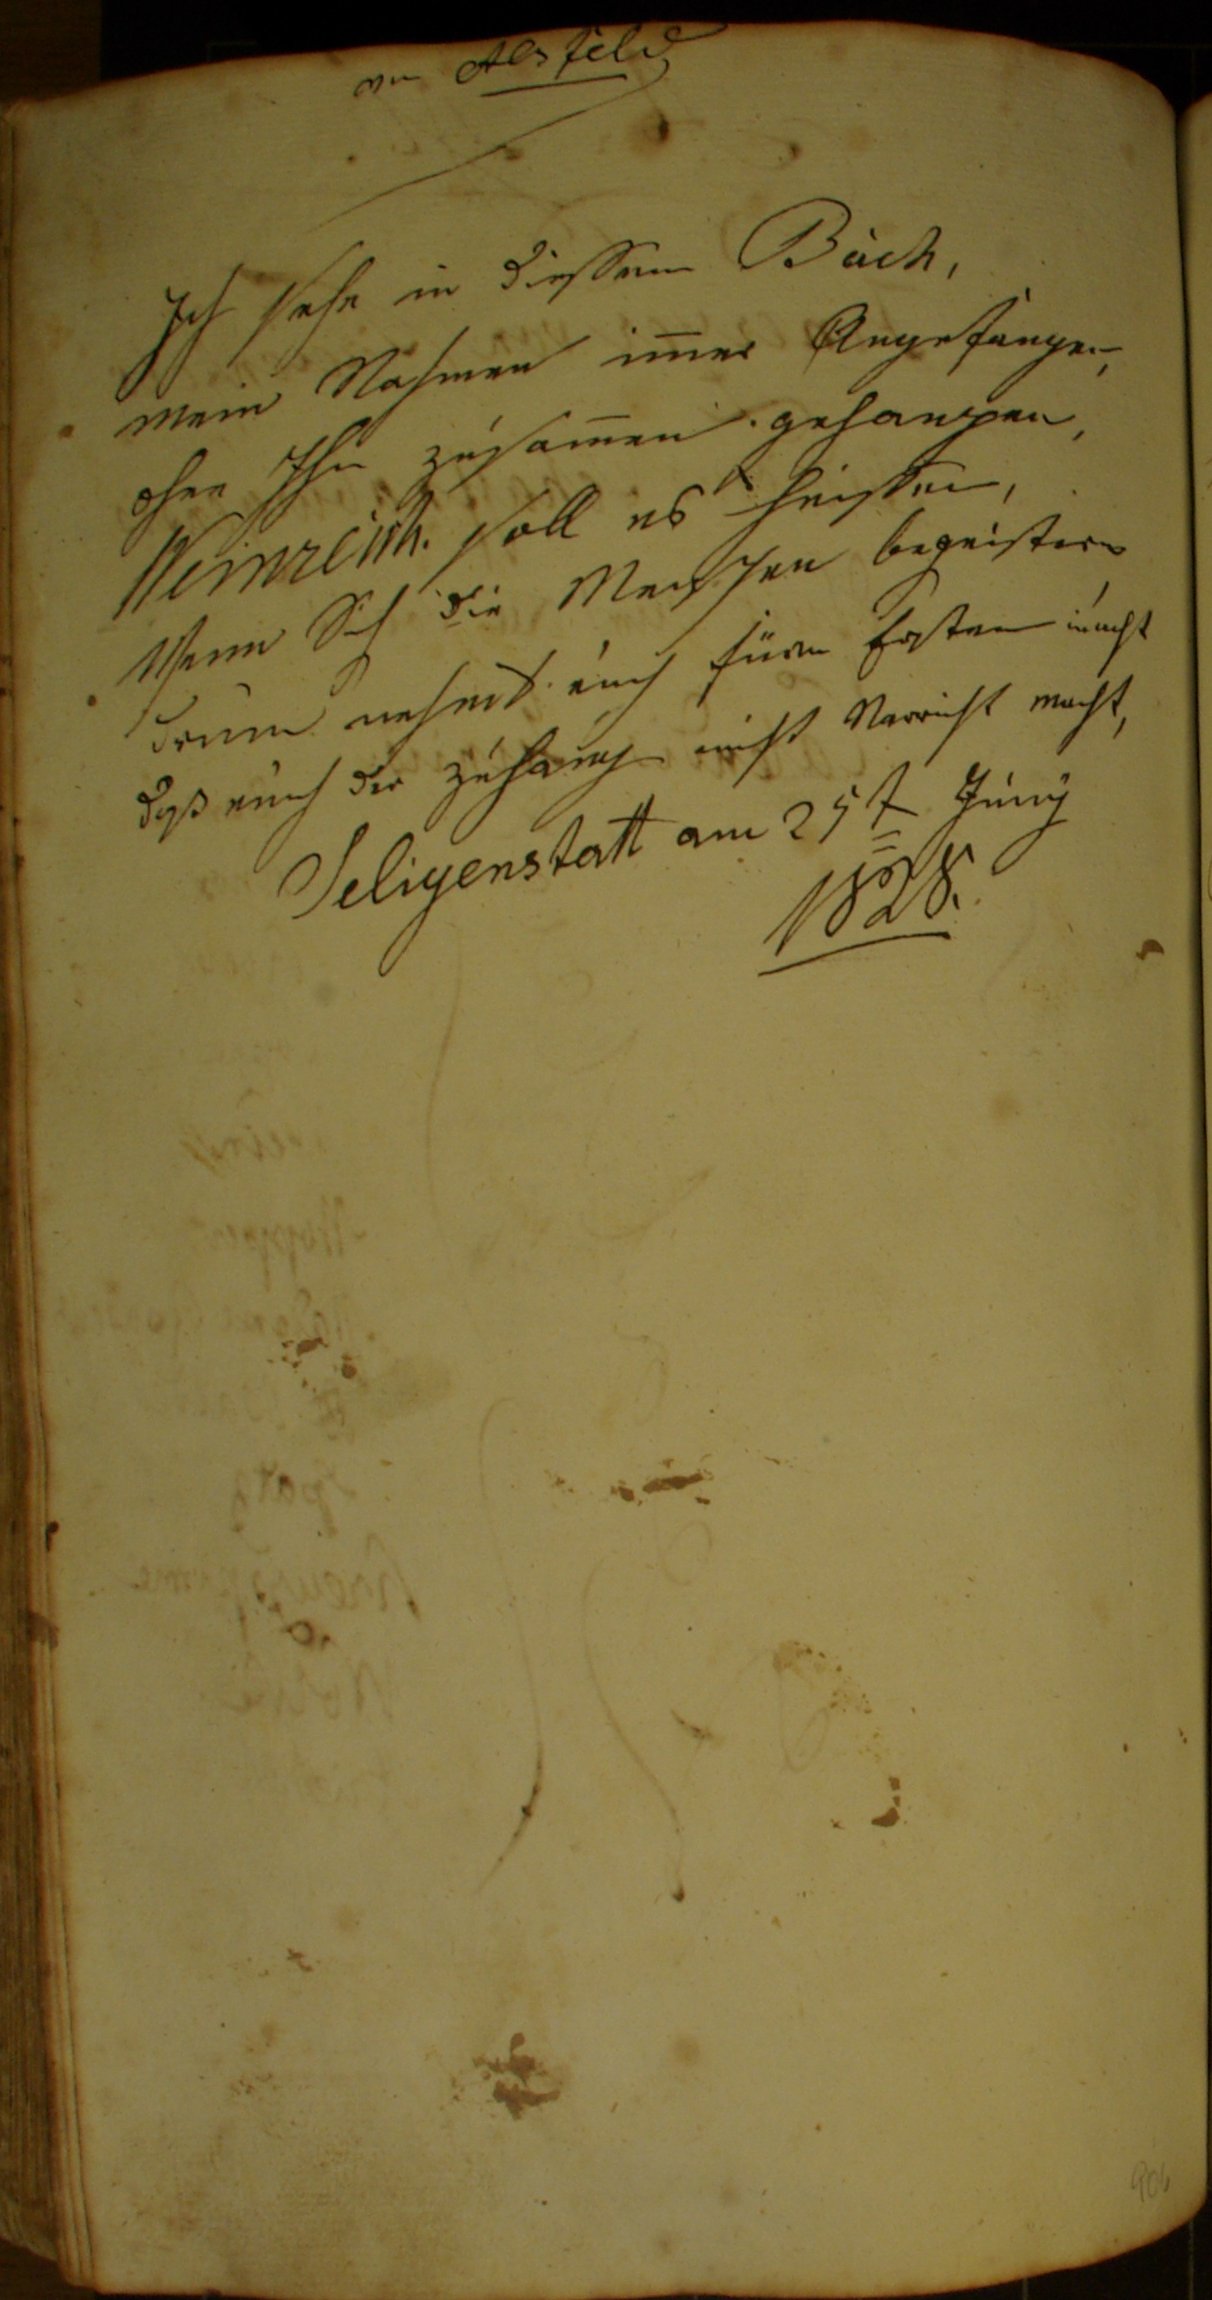 von Alsfeld
Ich sehe in diessem Buch,
mein Nahmen im̄er Angefangen,
ohne Ihn zusam̄en gehangen,
Weinreich. soll es heissen,
Wenn Sich die Menschen begeistern
drum nehmt euch fürm Ersten inacht
daß euch der zuhang nicht Verrückt macht,
Seligenstatt am 25t Juny
1828.
906